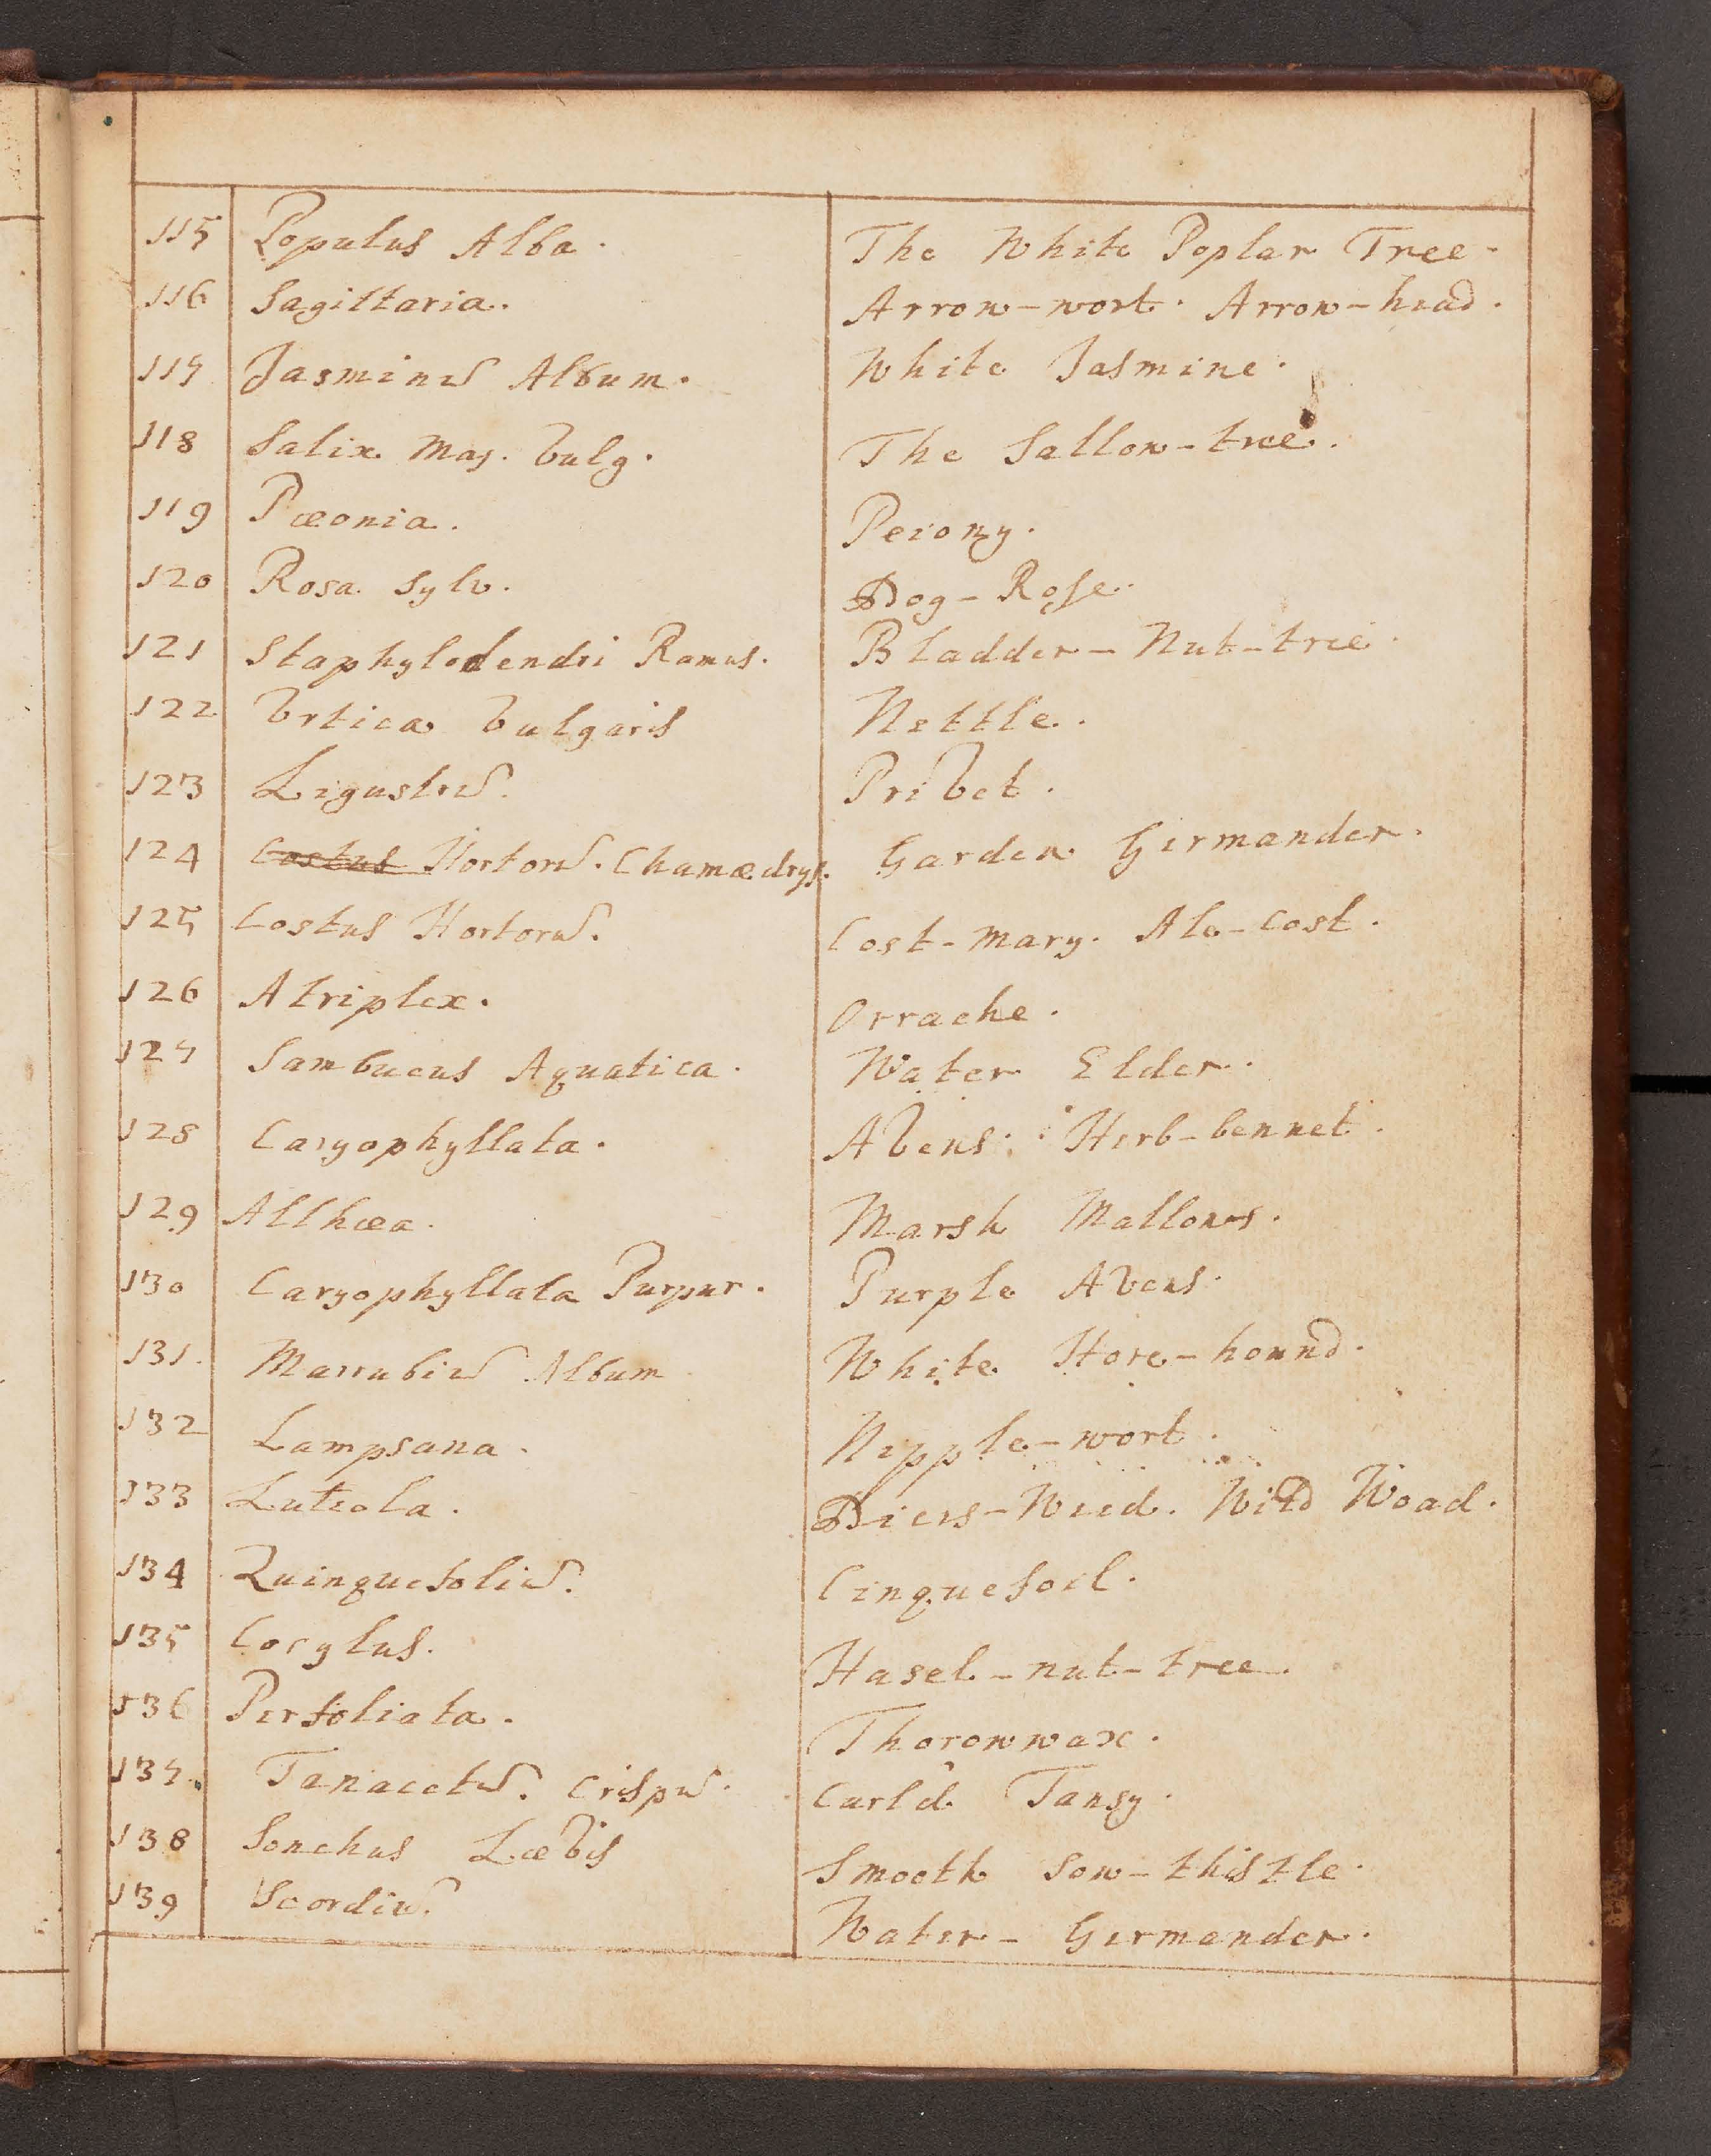 115 Populus Alba. The White Poplar Tree.
116 Sagittaria. Arrow-wort. Arrow-head.
117 Jasminū Album. White Jasmine.
118 Salix Maj. Vulg. The Sallow-tree.
119 Pæonia. Peiony.
120 Rosa Sylv. Dog-Rose.
121 Staphylodendri Ramus. Bladder-Nut-tree.
122 Vrtica Vulgaris Nettle.
123 Ligustrū. Privet.
124 Costus Hortorū. Chamædrys. Garden Germander.
125 Costus Hortorū. Cost-mary. Ale-cost.
126 Atriplex. Orrache.
127 Sambucus Aquatica. Water Elder.
128 Caryophyllata. Avens. Herb-bennet.
129 Althæa. Marsh Mallows.
130 Caryophyllata Purpur. Purple Avens.
131. Marrubiū Album White Hore-hound.
132 Lampsana. Nipple-wort.
133 Luteola. Diers-Weed. Wild Woad.
134 Quinquefoliū. Cinquefoil.
135 Corylus. Hasel-nut-tree.
136 Perfoliata. Thorowwax.
137. Tanacetū. Crispū. Curl'd Tansy.
138 Sonchus Lævis Smooth Sow-thistle.
139 Scordiū. Water-Germander.